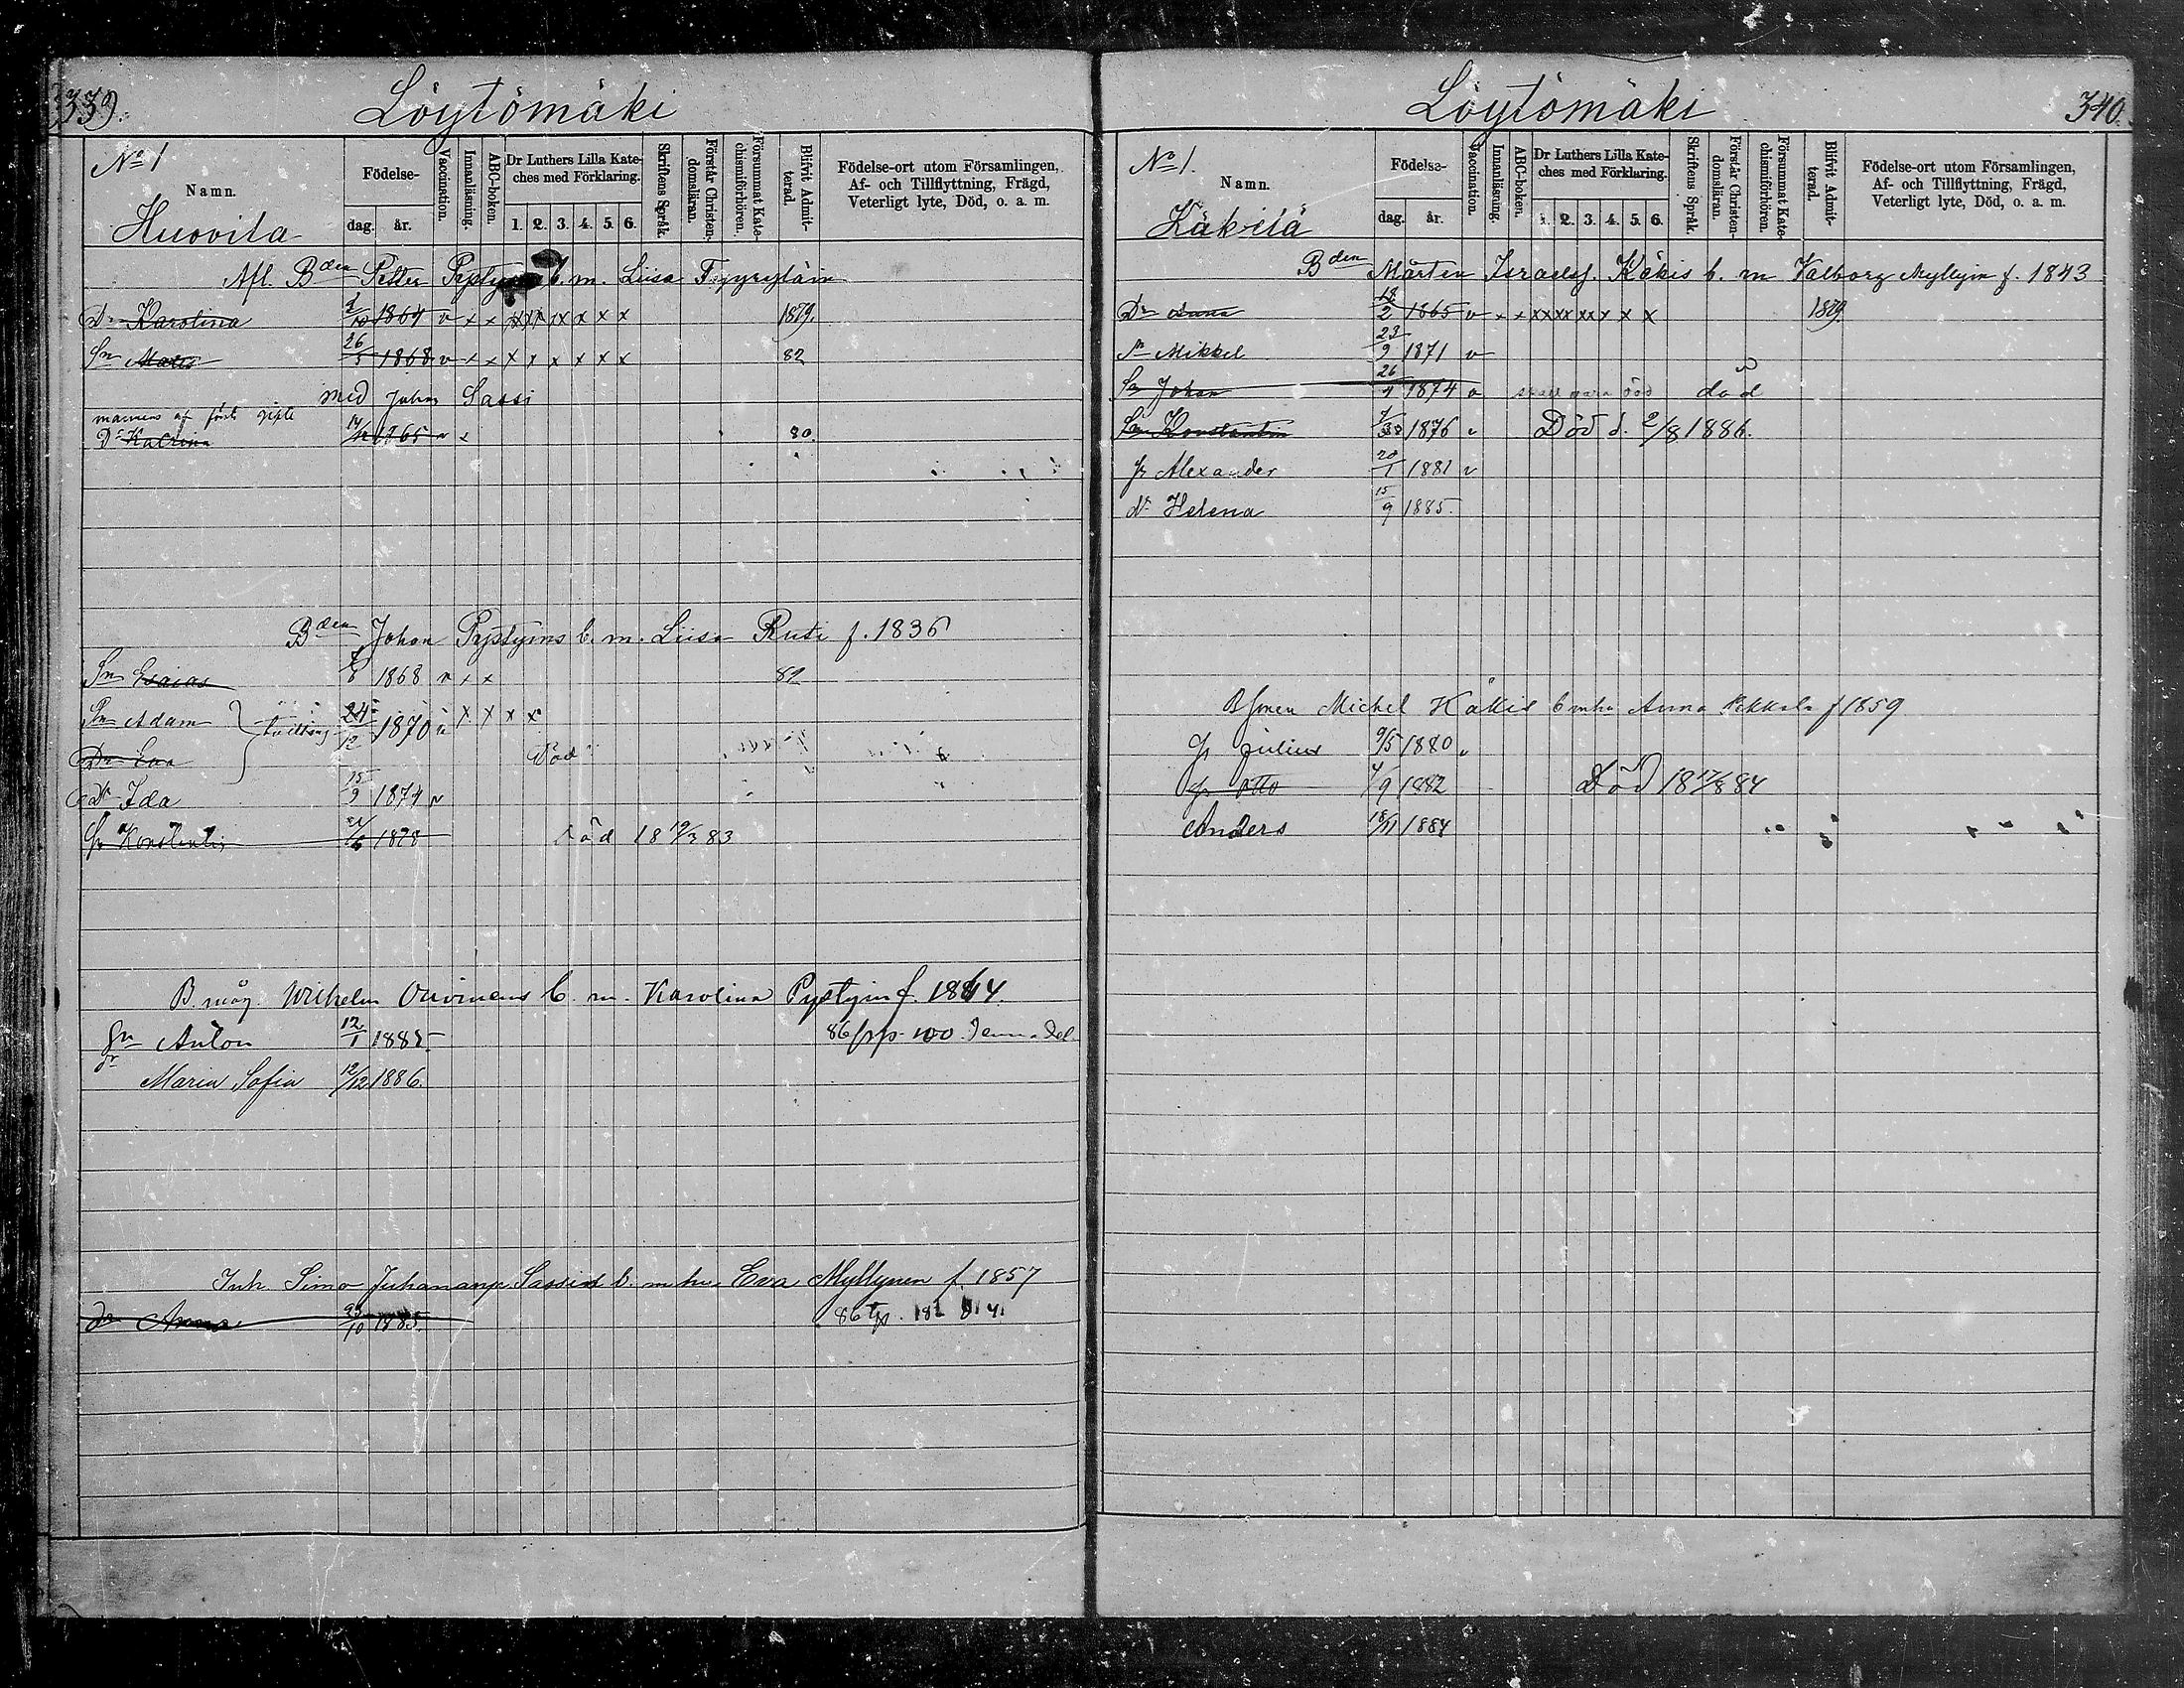 339.
Löytömäki
No 1
Namn.
Huovila
Födelse-
dag. år.
Vaccination.
Innanläsning.
ABC-boken.
Dr Luthers Lilla Kate-
ches med Förklaring.
1. 2. 3. 4. 5. 6.
Skriftens Språk.
Förstår Christen-
domsläran.
Försummat Kate-
chismiförhören.
Blifvit Admit-
terad.
Födelse-ort utom Församlingen,
Af- och Tillflyttning, Frägd,
Veterligt lyte, Död, o. a. m.
Afl. Bden Petter b. m. Liisa
Dr Karolina 2/10 1864 v x x x x x x x x x 1879.
Sn Matts 26/5 1868 v x x x x x x x x 82
med Johan Sassi
mannens af förb gifte
Dr Katrina 14/12 1865 v x 80.
Bden Johan Pystyins b. m. Liisa Ruti f. 1836
Sn Esaias 1868 v x x 82
Sn Adam tvilling 24/12 1870 v x x x x
Dr Eva Död
Dr Ida 15/9 1874 v
Gn Konstantin 1878 Död 18 19/3 83
B. måg. Wilhelm Ouvinens b. m. Karolina Pystyin f. 1864.
Gn Anton 12/1 1885. 86 p. 100 Denna del.
Maria Sofia 12/12 1886.
Inh. Simo Juhananp. Sassis b. m. hu Eva Myllynen f. 1857
dr Anna 23/10 1885. 86
Löytömäki
340.
No 1.
Namn.
Käkelä
Födelse-
dag. år.
Vaccination.
Innanläsning.
ABC-boken.
Dr Luthers Lilla Kate-
ches med Förklaring.
1. 2. 3. 4. 5. 6.
Skriftens Språk.
Förstår Christen-
domsläran.
Försummat Kate-
chismiförhören.
Blifvit Admit-
terad.
Födelse-ort utom Församlingen,
Af- och Tillflyttning, Frägd,
Veterligt lyte, Död, o. a. m.
Bden Mårten Israelsj. Käkis b. m Valborg Myllyin f. 1843
Dr Anna 18/2 1865 v x x x x x x x x x x 1879.
Sn Mikkel 23/9 1871 v
Sn Johan 26/4 1874 v skall vara död död
Sn Konstantin 1876 v Död d. 2/8 1886.
Gn Alexander 20/1 1881 v
dr Helena 15/9 1885.
B sonen Michel Käkis b m hu Anna Pekkala f 1859
Gn Julius 9/5 1880 v
Gn Otto 4/9 1882 Död 18 17/8 84
Anders 18/11 1884